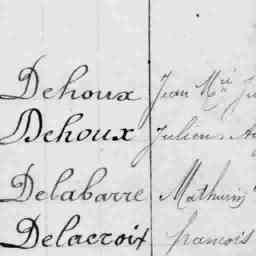 Dehoux Jean M
Dehoux Julien
Delabarre Mathurin
Delacroix francois